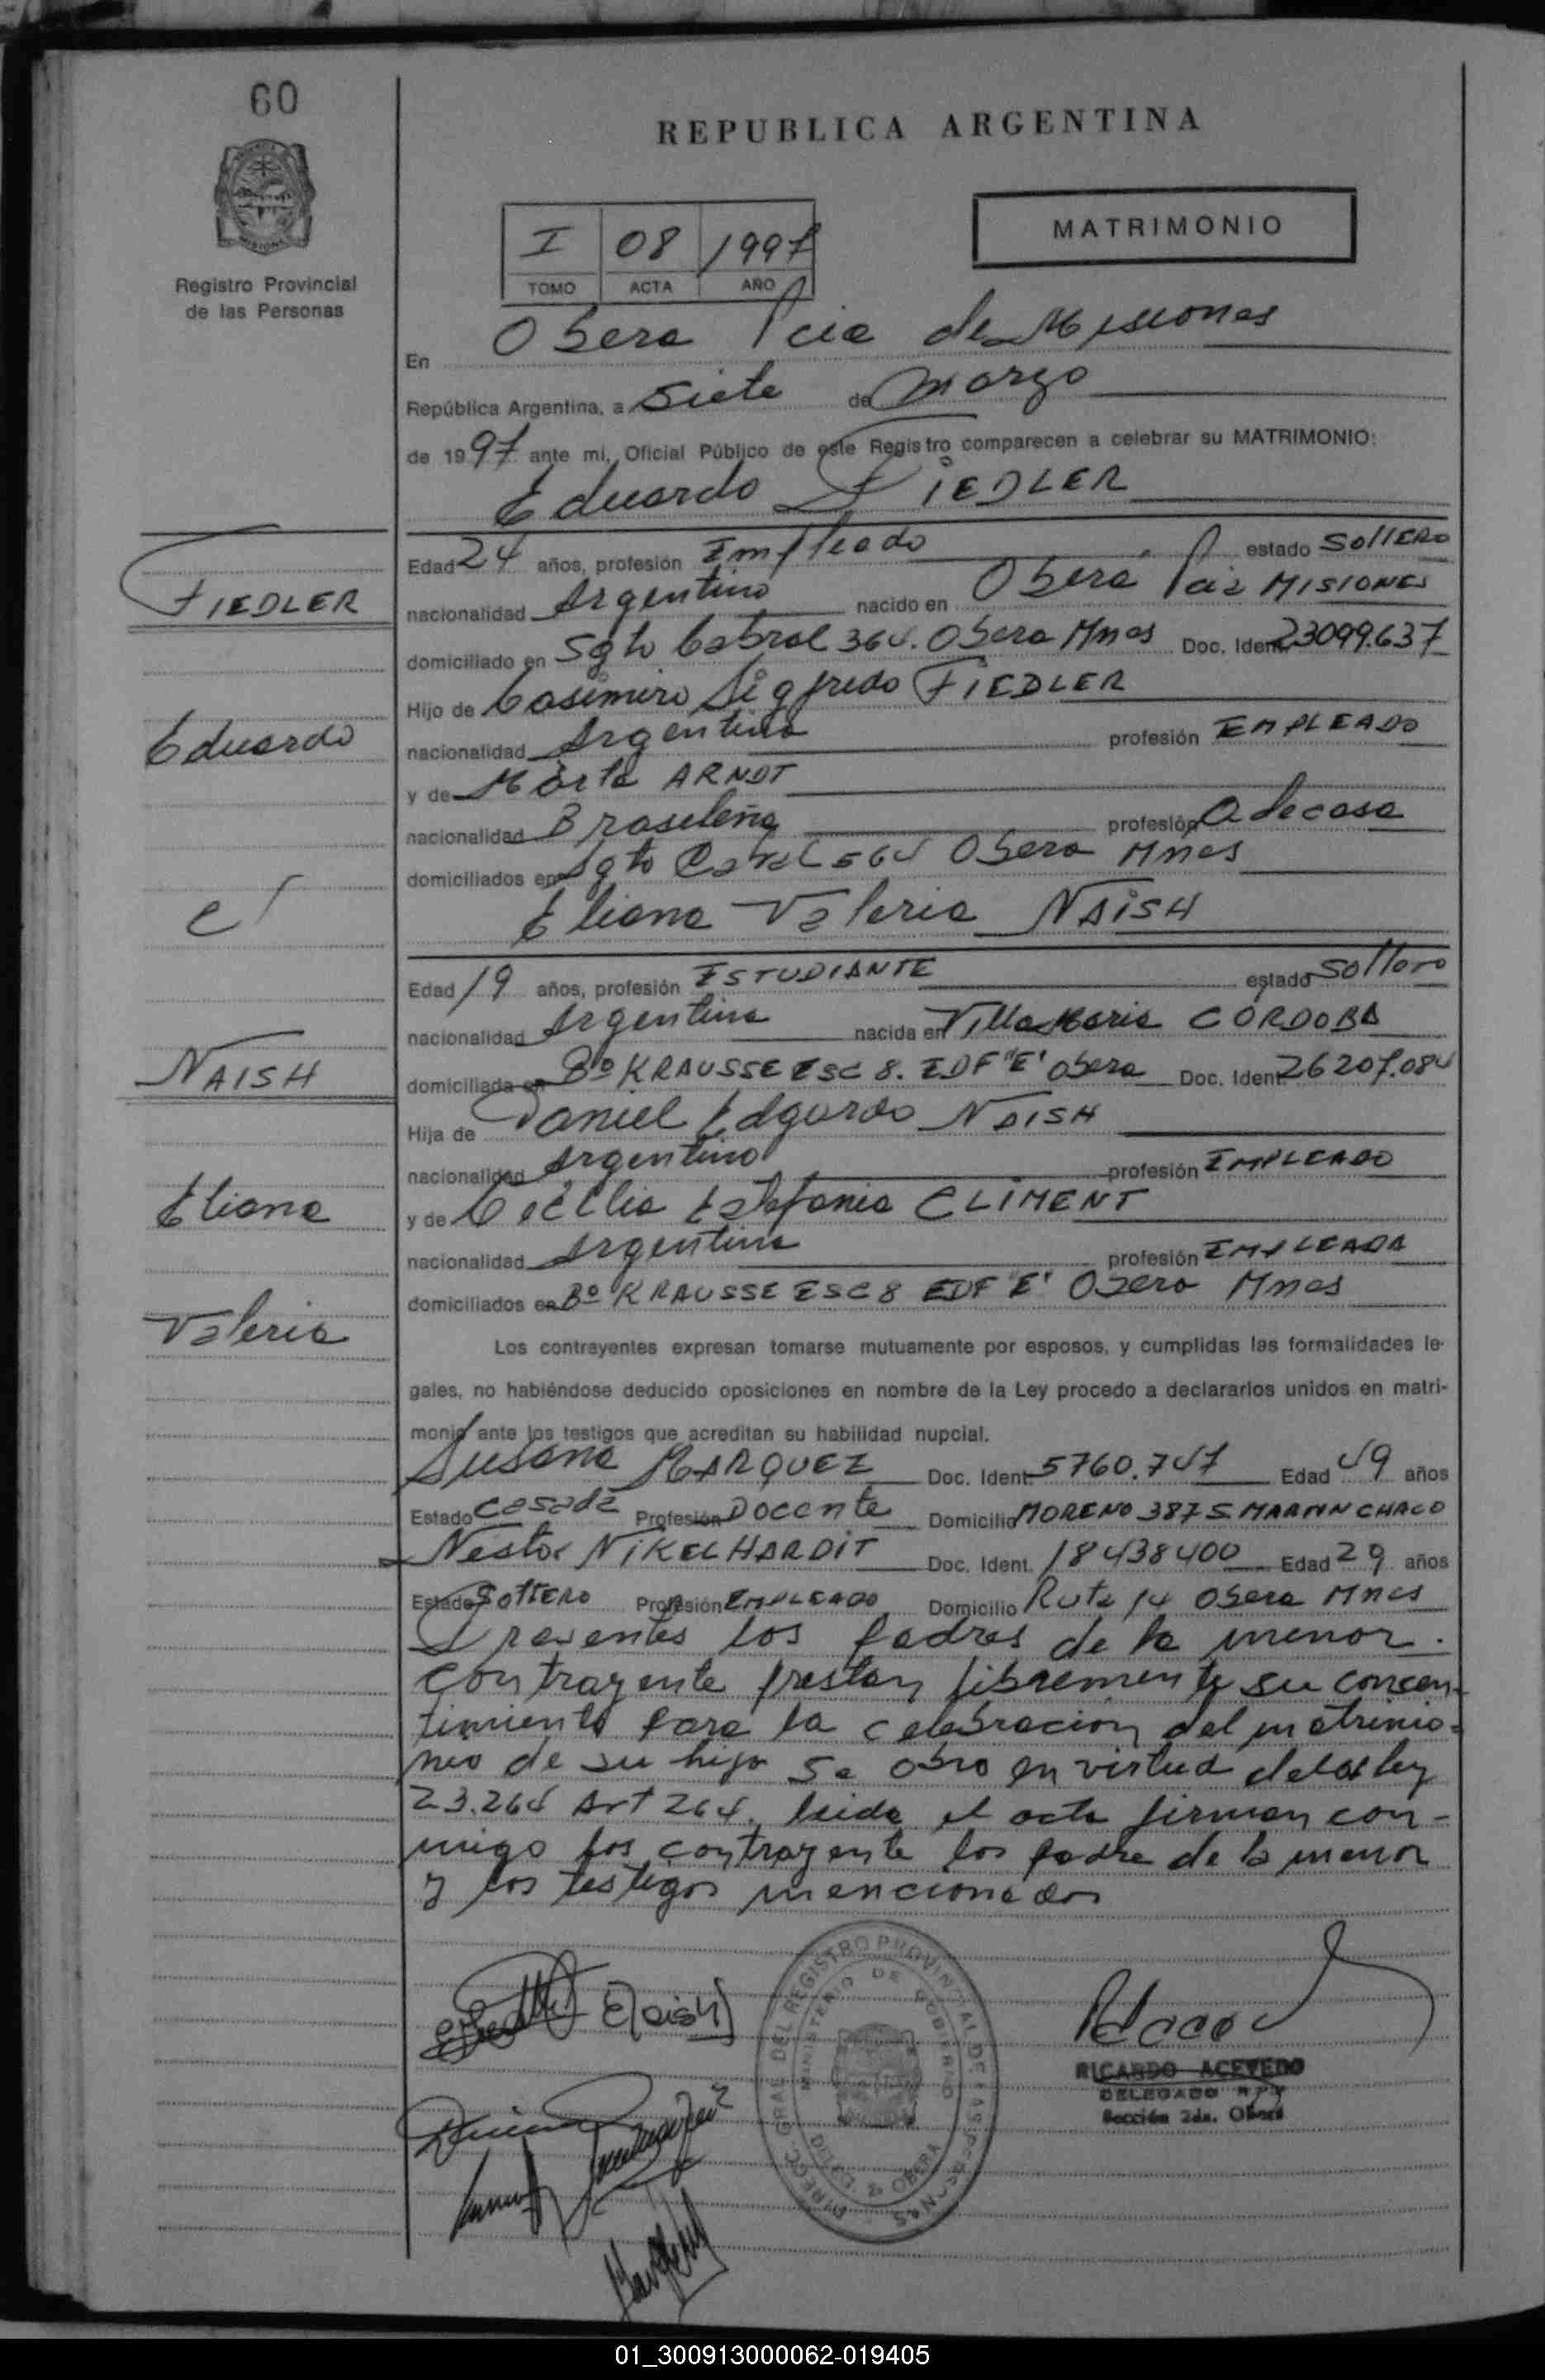 60
REPUBLICA ARGENTINA
MISIONES
Registro Provincial
de las Personas
I 08 1997
TOMO ACTA AÑO
MATRIMONIO
En Obera Pcia de Misiones
República Argentina, a siete de marzo
de 1997 ante mi, Oficial Público de este Registro comparecen a celebrar su MATRIMONIO:
Eduardo FIEDLER
Edad 24 años, profesión Empleado estado SOLTERO
FIEDLER
nacionalidad Argentino nacido en Oberá Pcia MISIONES
domiciliado en Sgto Cabral 364. Obera Mnes Doc. Ident. 23099.637
Hijo de Casimiro Sigfredo FIEDLER
Eduardo
nacionalidad Argentina profesión EMPLEADO
y de Marta ARNDT
nacionalidad Brasileña profesión A de casa
domiciliados en Sgto Cabral 564 Obera Mnes
c/
Eliana Valeria NAISH
Edad 19 años, profesión ESTUDIANTE estado soltero
nacionalidad Argentina nacida en Villa Maria CORDOBA
NAISH
domiciliada en Bº KRAUSSE ESC 8. EDF "E" Obera Doc. Ident. 26207.084
Hija de Daniel Edgardo NAISH
nacionalidad Argentino profesión EMPLEADO
Eliana
y de Cecilia Estefania CLIMENT
nacionalidad Argentina profesión EMPLEADA
domiciliados en Bº KRAUSSE ESC 8 EDF "E" Obera Mnes
Valeria
Los contrayentes expresan tomarse mutuamente por esposos, y cumplidas las formalidades le-
gales, no habiéndose deducido oposiciones en nombre de la Ley procedo a declararlos unidos en matri-
monio ante los testigos que acreditan su habilidad nupcial.
Susana MARQUEZ Doc. Ident. 5760.747 Edad 49 años
Estado casada Profesión Docente Domicilio MORENO 387 S. MARTIN CHACO
Nestor NIKELHARDIT Doc. Ident. 18438400 Edad 29 años
Estado SOLTERO Profesión EMPLEADO Domicilio Ruta 14 Obera Mnes
Presentes los padres de la menor.
contrayente prestan libremente su concen-
timiento para la celebracion del matrimo-
nio de su hija se obro en virtud de la ley
23.264 Art 264. leida el acta firman con-
migo los contrayente los padre de la menor
y los testigos mencionados
E Naish
DIRECC. GRAL DEL REGISTRO PROVINCIAL DE LAS PERSONAS
MINISTERIO DE GOBIERNO
OBERA
RICARDO ACEVEDO
DELEGADO RPP
Sección 2da. Oberá
01_300913000062-019405